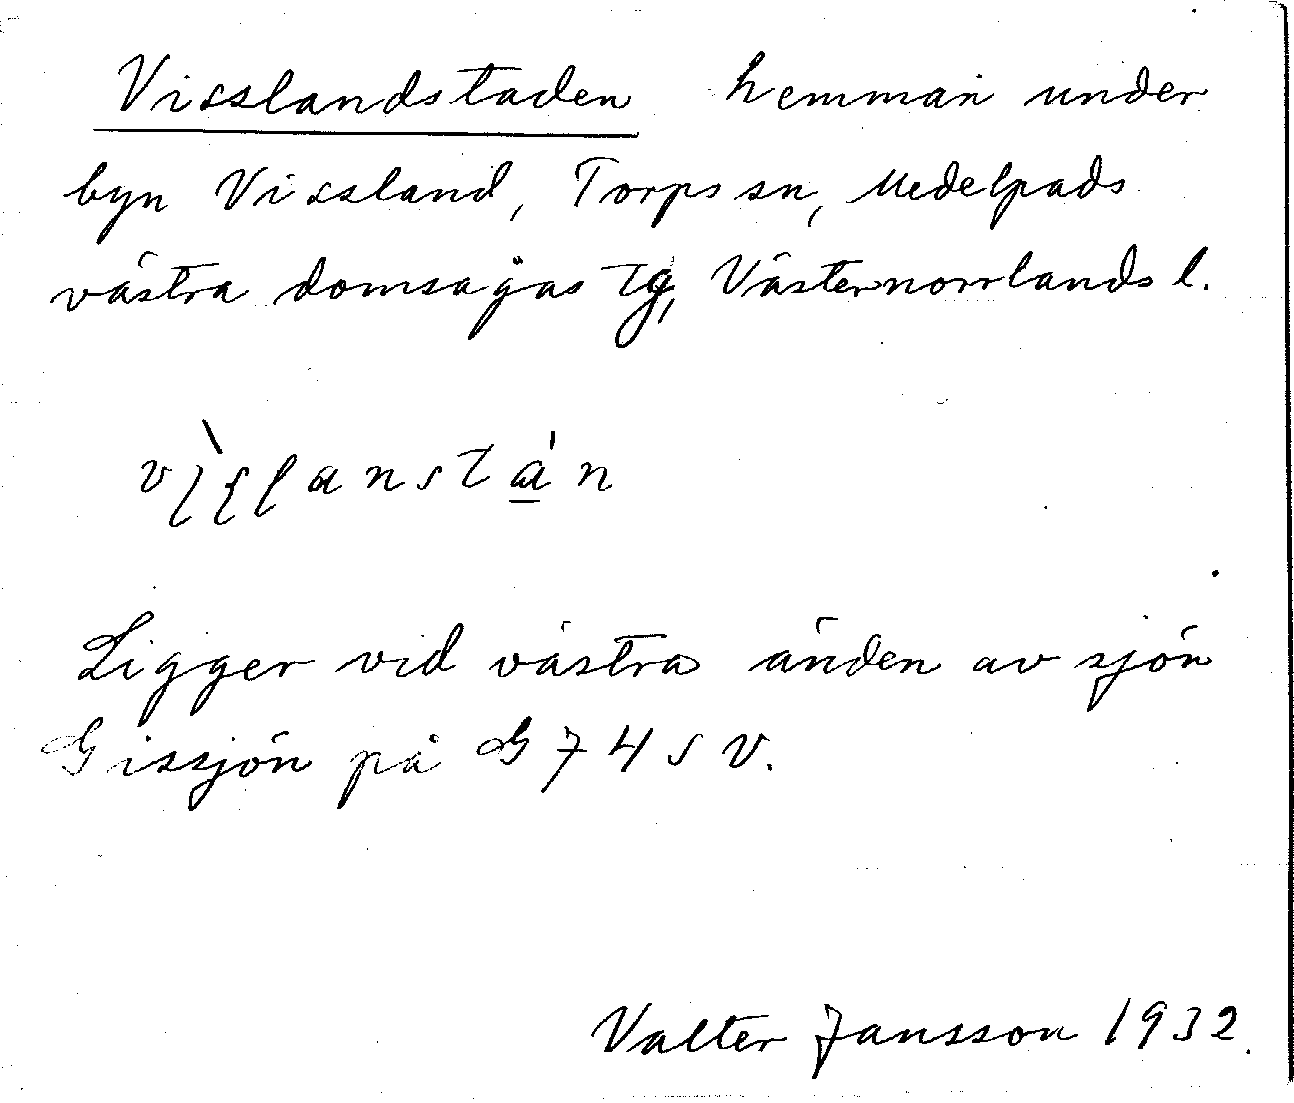 Visslandstaden hemman under
byn Vissland, Torps sn, Medelpads
västra domsagas tg, Västernorrlands l.
Ligger vid västra änden av sjön
Gissjön på G 74 s v.
Valter Jansson 1932.